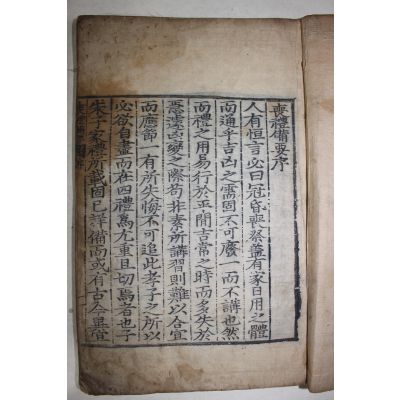 喪禮備要序
人有恒言必曰冠昏喪祭蓋有家日用之體
而通乎吉凶之需固不可廢一而不講也然
而禮之用易行於平閒吉常之時而多失於
急遽凶變之際苟非素所講習則難以合宜
而應節一有所失悔不可追此孝子之所以
必欲自盡而在四禮爲尤重且切焉者也子
朱子家禮所載固已詳備而或有古今異宜